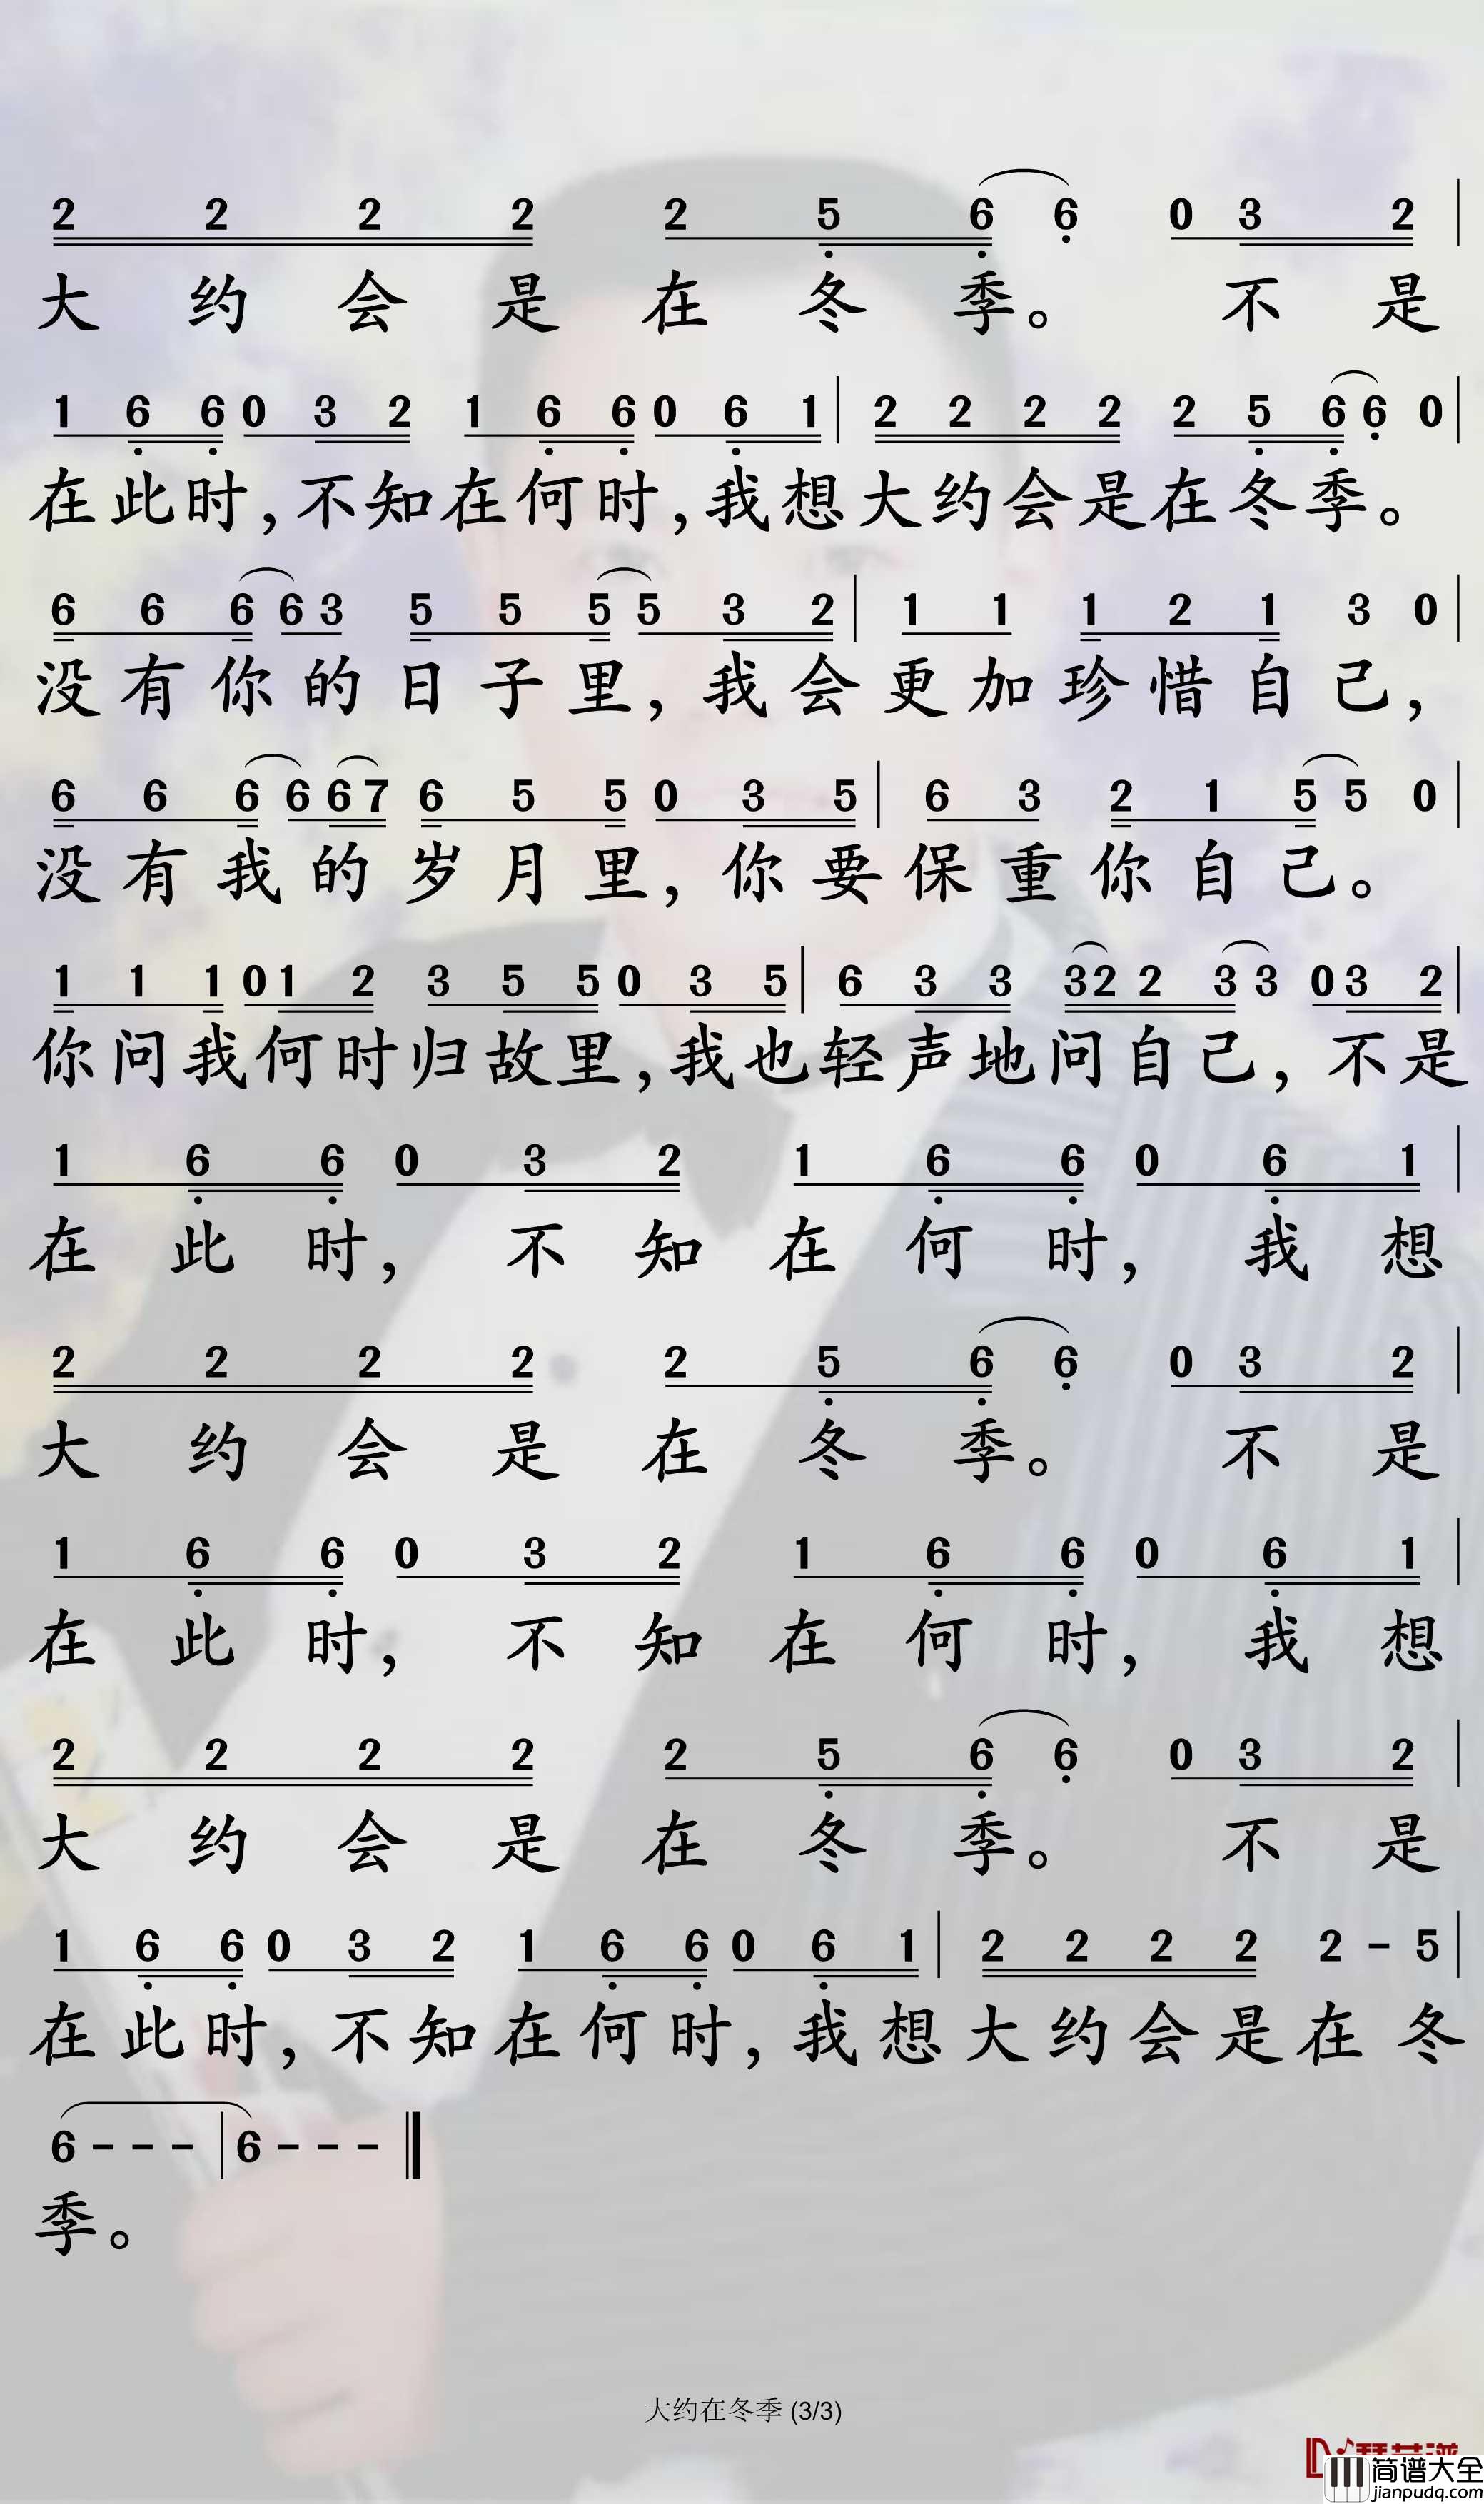 2 2 2 2 2 5 6 6 0 3 2
大约会是在冬季。不是
1 6 6 0 3 2 1 6 6 0 6 1 | 2 2 2 2 2 5 6 6 0
在此时,不知在何时,我想大约会是在冬季。
6 6 6 6 3 5 5 5 5 3 2 | 1 1 1 2 1 3 0
没有你的日子里,我会更加珍惜自己,
6 6 6 6 6 7 6 5 5 0 3 5 | 6 3 2 1 5 5 0
没有我的岁月里,你要保重你自己。
1 1 1 0 1 2 3 5 5 0 3 5 | 6 3 3 3 2 2 3 3 0 3 2
你问我何时归故里,我也轻声地问自己,不是
1 6 6 0 3 2 1 6 6 0 6 1
在此时,不知在何时,我想
2 2 2 2 2 5 6 6 0 3 2
大约会是在冬季。不是
1 6 6 0 3 2 1 6 6 0 6 1
在此时,不知在何时,我想
2 2 2 2 2 5 6 6 0 3 2
大约会是在冬季。不是
1 6 6 0 3 2 1 6 6 0 6 1 | 2 2 2 2 2 - 5
在此时,不知在何时,我想大约会是在冬
6 - - - | 6 - - -
季。
大约在冬季 (3/3)
简谱大全
jianpudq.com